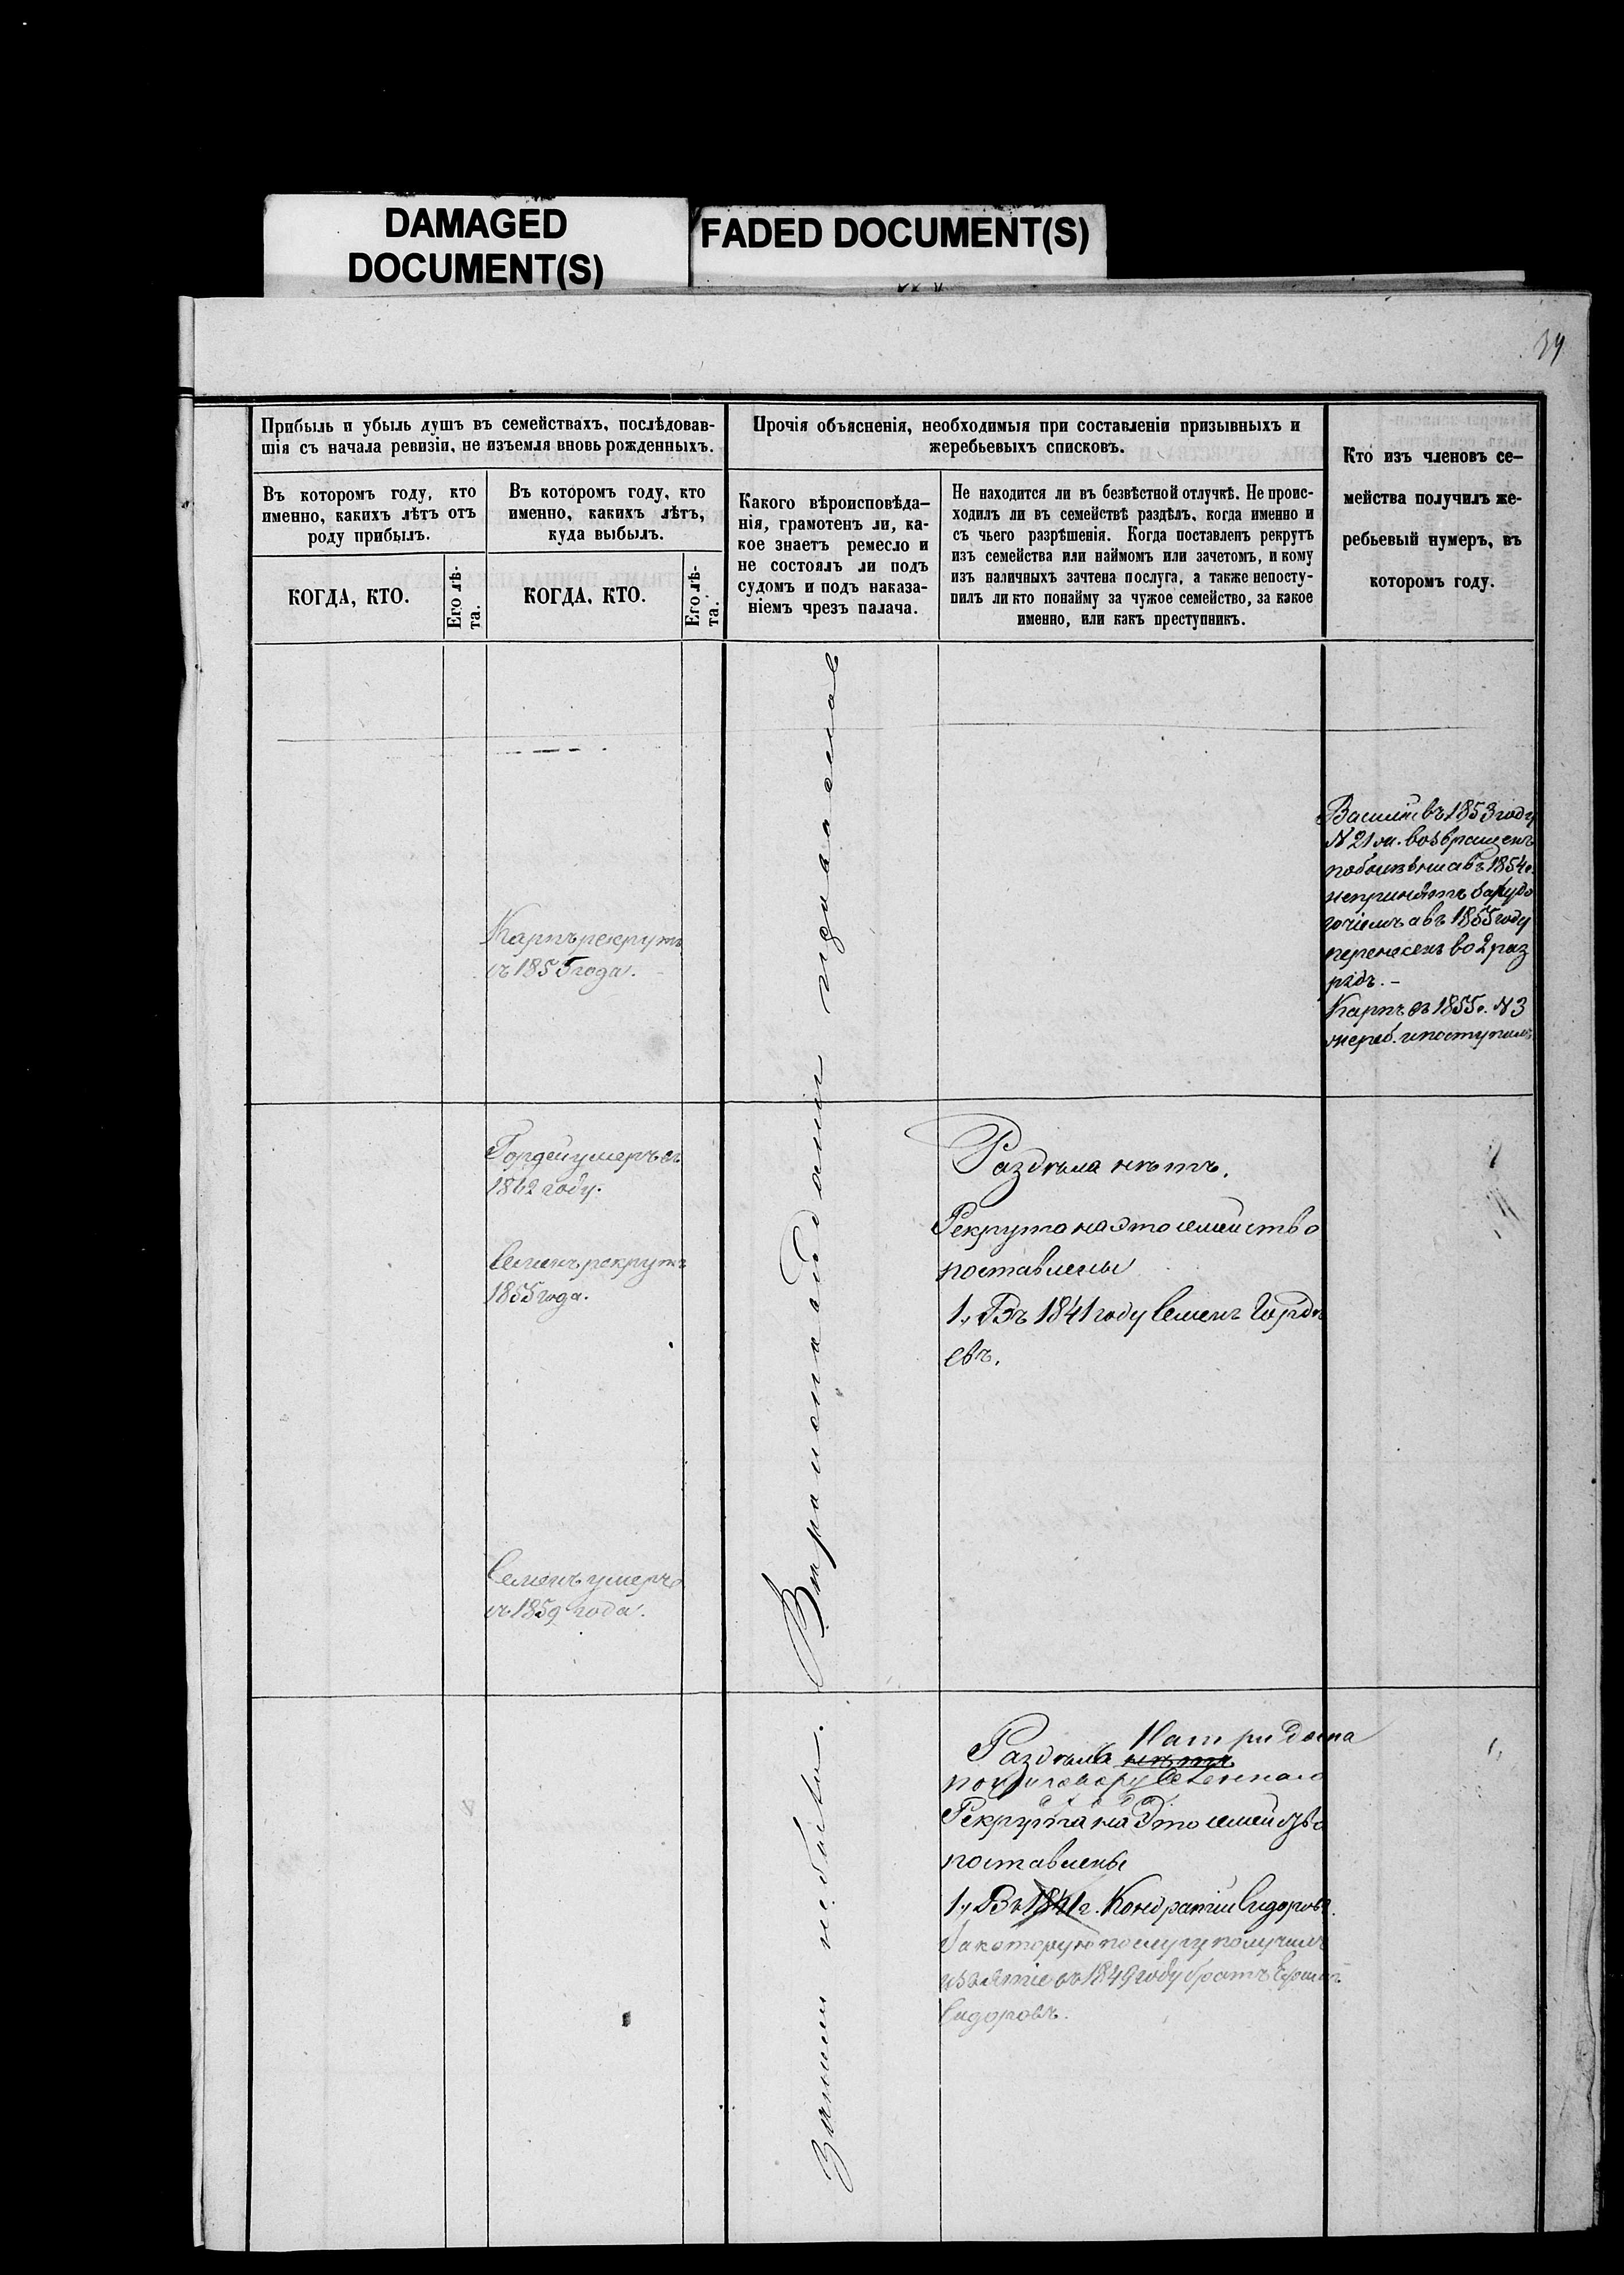 DAMAGED
DOCUMENT(S)
FADED DOCUMENT(S)
39
Прибыль и убыль душъ въ семействахъ, послѣдовав-
шія съ начала ревизіи, не изъемля вновь рожденныхъ.
Въ которомъ году, кто
именно, какихъ лѣтъ отъ
роду прибылъ.
КОГДА, КТО.
Его лѣ-
та.
Въ которомъ году, кто
именно, какихъ лѣтъ,
куда выбылъ.
КОГДА, КТО.
Его лѣ-
та.
Прочія объясненія, необходимыя при составленіи призывныхъ и
жеребьевыхъ списковъ.
Какого вѣроисповѣда-
нія, грамотенъ ли, ка-
кое знаетъ ремесло и
не состоялъ ли подъ
судомъ и подъ наказа-
ніемъ чрезъ палача.
Не находится ли въ безвѣстной отлучкѣ. Не проис-
ходилъ ли въ семействѣ раздѣлъ, когда именно и
съ чьего разрѣшенія. Когда поставленъ рекрутъ
изъ семейства или наймомъ или зачетомъ, и кому
изъ наличныхъ зачтена послуга, а также непосту-
пилъ ли кто понайму за чужое семейство, за какое
именно, или какъ преступникъ.
Кто изъ членовъ се-
мейства получилъ же-
ребьевый нумеръ, въ
которомъ году.
Карпъ рекрутъ
съ 1855 года.
Василій въ 1853 году
N 21 возвращенъ
а въ 1854 г.
непринятъ
а въ 1855 году
перенесенъ во 2 раз
рядъ.-
Карпъ въ 1855 г. N 3
жереб. и поступилъ
Гордей умеръ въ
1862 году.
Семенъ рекрутъ
1855 года.
Семенъ умеръ
съ 1859 года.
Раздѣла нѣтъ.
Рекрута на это семейство
поставлены
1., Въ 1841 году Семенъ Гордѣ
евъ.
Вѣроисповѣданія
Раздѣла нѣтъ На три дома
по приговору
Рекрута на это семейство
поставлены
1., Въ 1841 г. Кондратій Сидоровъ.
За которую послугу получилъ
изъятіе въ 1849 году братъ
Сидоровъ.